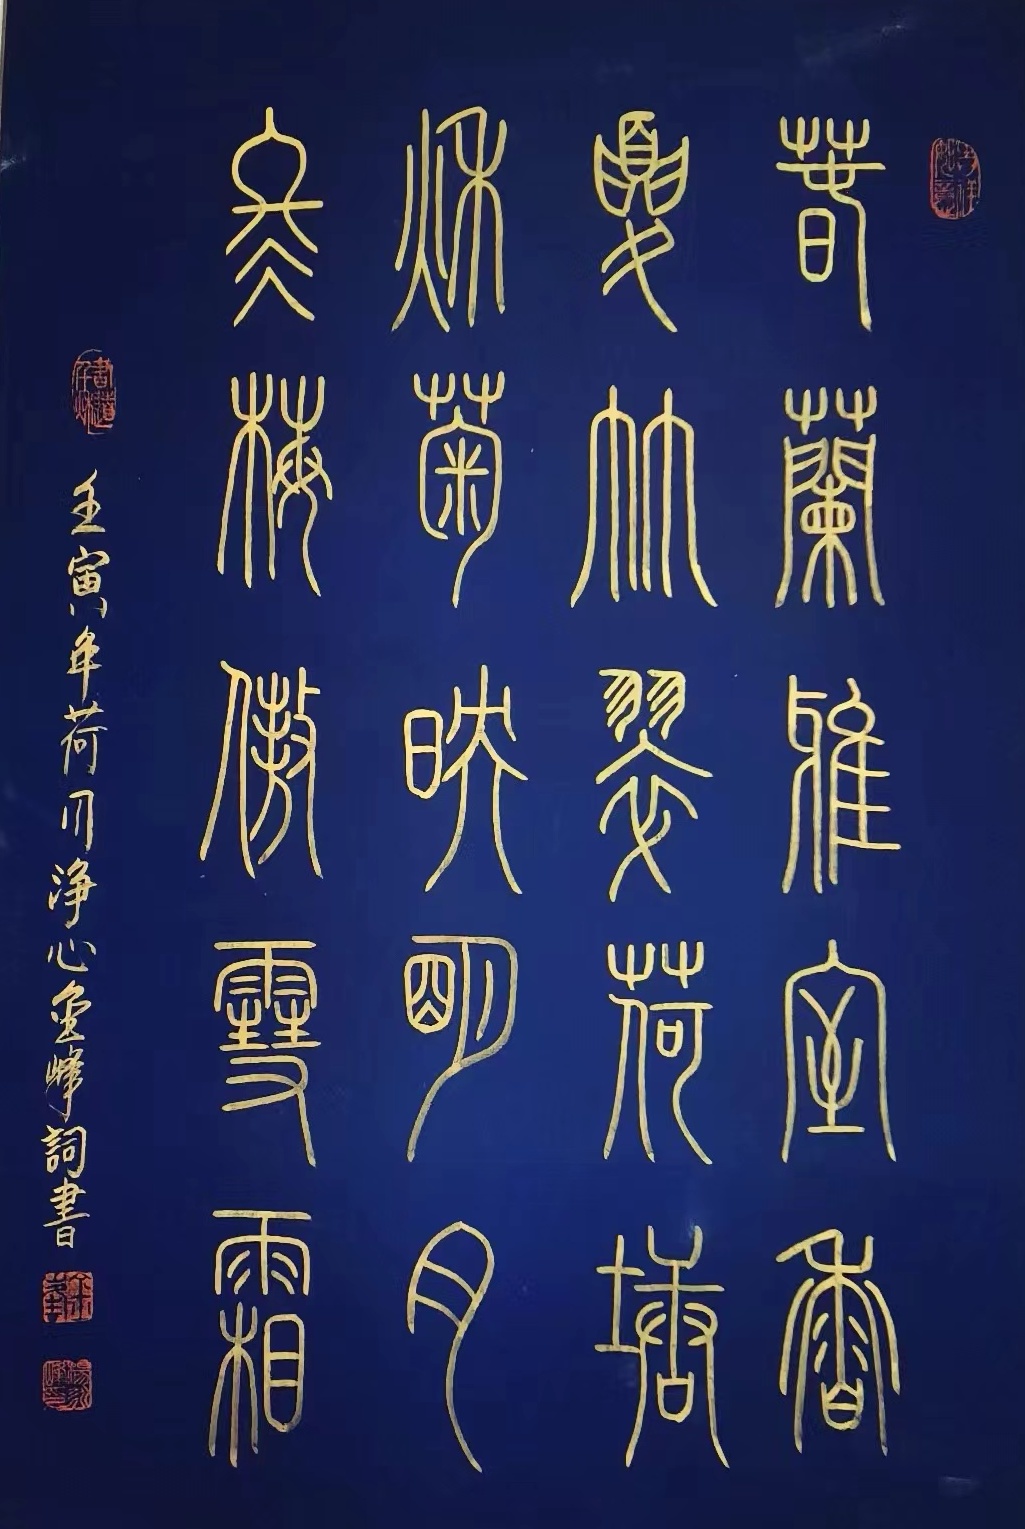 春蘭雅室香
夏竹翠荷塘
秋菊映明月
冬梅傲雪霜
壬寅年荷月淨心金峰詞書